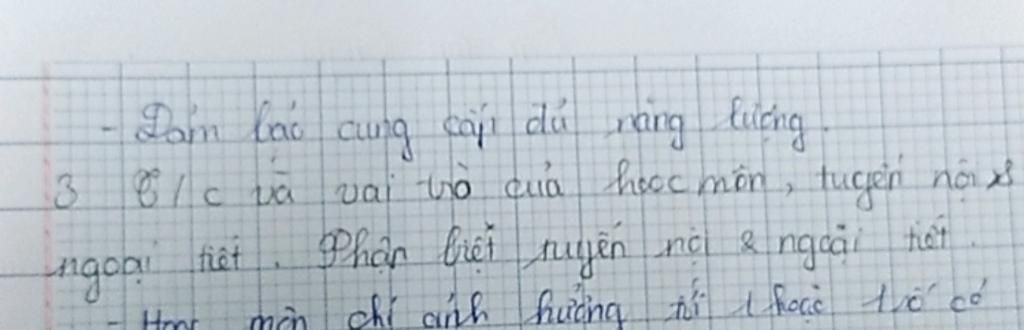 - Đảm bảo cung cấp đủ năng lượng.
3 T/c và vai trò của hoocmôn, tuyến nội &
ngoại tiết. Phân biệt tuyến nội & ngoại tiết.
- Hooc môn chỉ ảnh hưởng tới 1 hoặc 1 số cơ